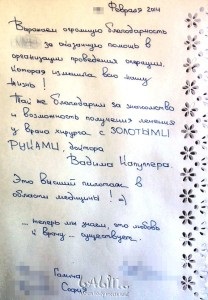 Февраля 2014
Выражаем огромную благодарность
за оказанную помощь в
организации проведения операции,
которая изменила всю нашу
жизнь!
Так же благодарим за знакомство
и возможность получения лечения
у врача хирурга с ЗОЛОТЫМИ
РУКАМИ, доктора
Вадима
Это высший пилотаж в
области медицины! =)
... теперь мы знаем, что любовь
к врачу... существует...
Галина,
София